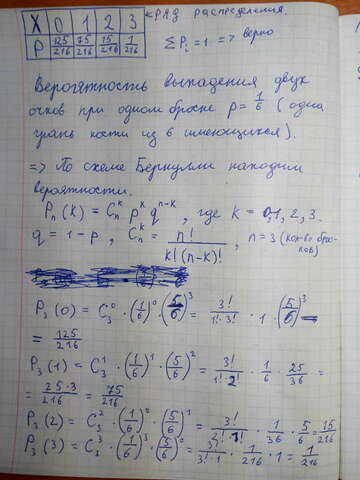 X 0 1 2 3 ← ряд распределения.
P 125/216 75/216 15/216 1/216 ΣPᵢ = 1 => верно
Вероятность выпадения двух
очков при одном броске p = 1/6 (одна
грань кости из 6 имеющихся).
=> По схеме Бернулли находим
вероятности.
Pₙ(k) = Cₙᵏ pᵏ qⁿ⁻ᵏ, где k = 0,1,2,3.
q = 1 - p, Cₙᵏ = n!/k!(n-k)!, n = 3 (кол-во брос-
ков)
P₃(0) = C₃⁰ · (1/6)⁰ · (5/6)³ = 3!/1!·3! · 1 · (5/6)³ =
= 125/216
P₃(1) = C₃¹ · (1/6)¹ · (5/6)² = 3!/1!·2! · 1/6 · 25/36 =
= 25·3/216 = 75/216
P₃(2) = C₃² · (1/6)² · (5/6)¹ = 3!/2!·1! · 1/36 · 5/6 = 15/216
P₃(3) = C₃³ · (1/6)³ · (5/6)⁰ = 3!/3!·1 · 1/216 · 1 = 1/216